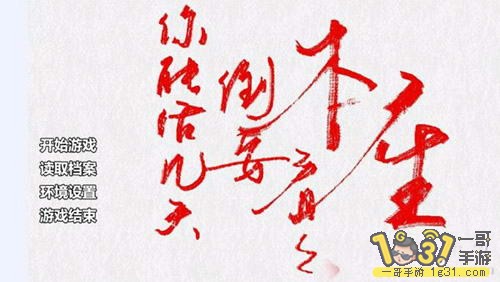 本座
倒要看々
你能活几天
开始游戏
读取档案
环境设置
游戏结束
1G31
一哥
手游
一哥手游 1g31.com